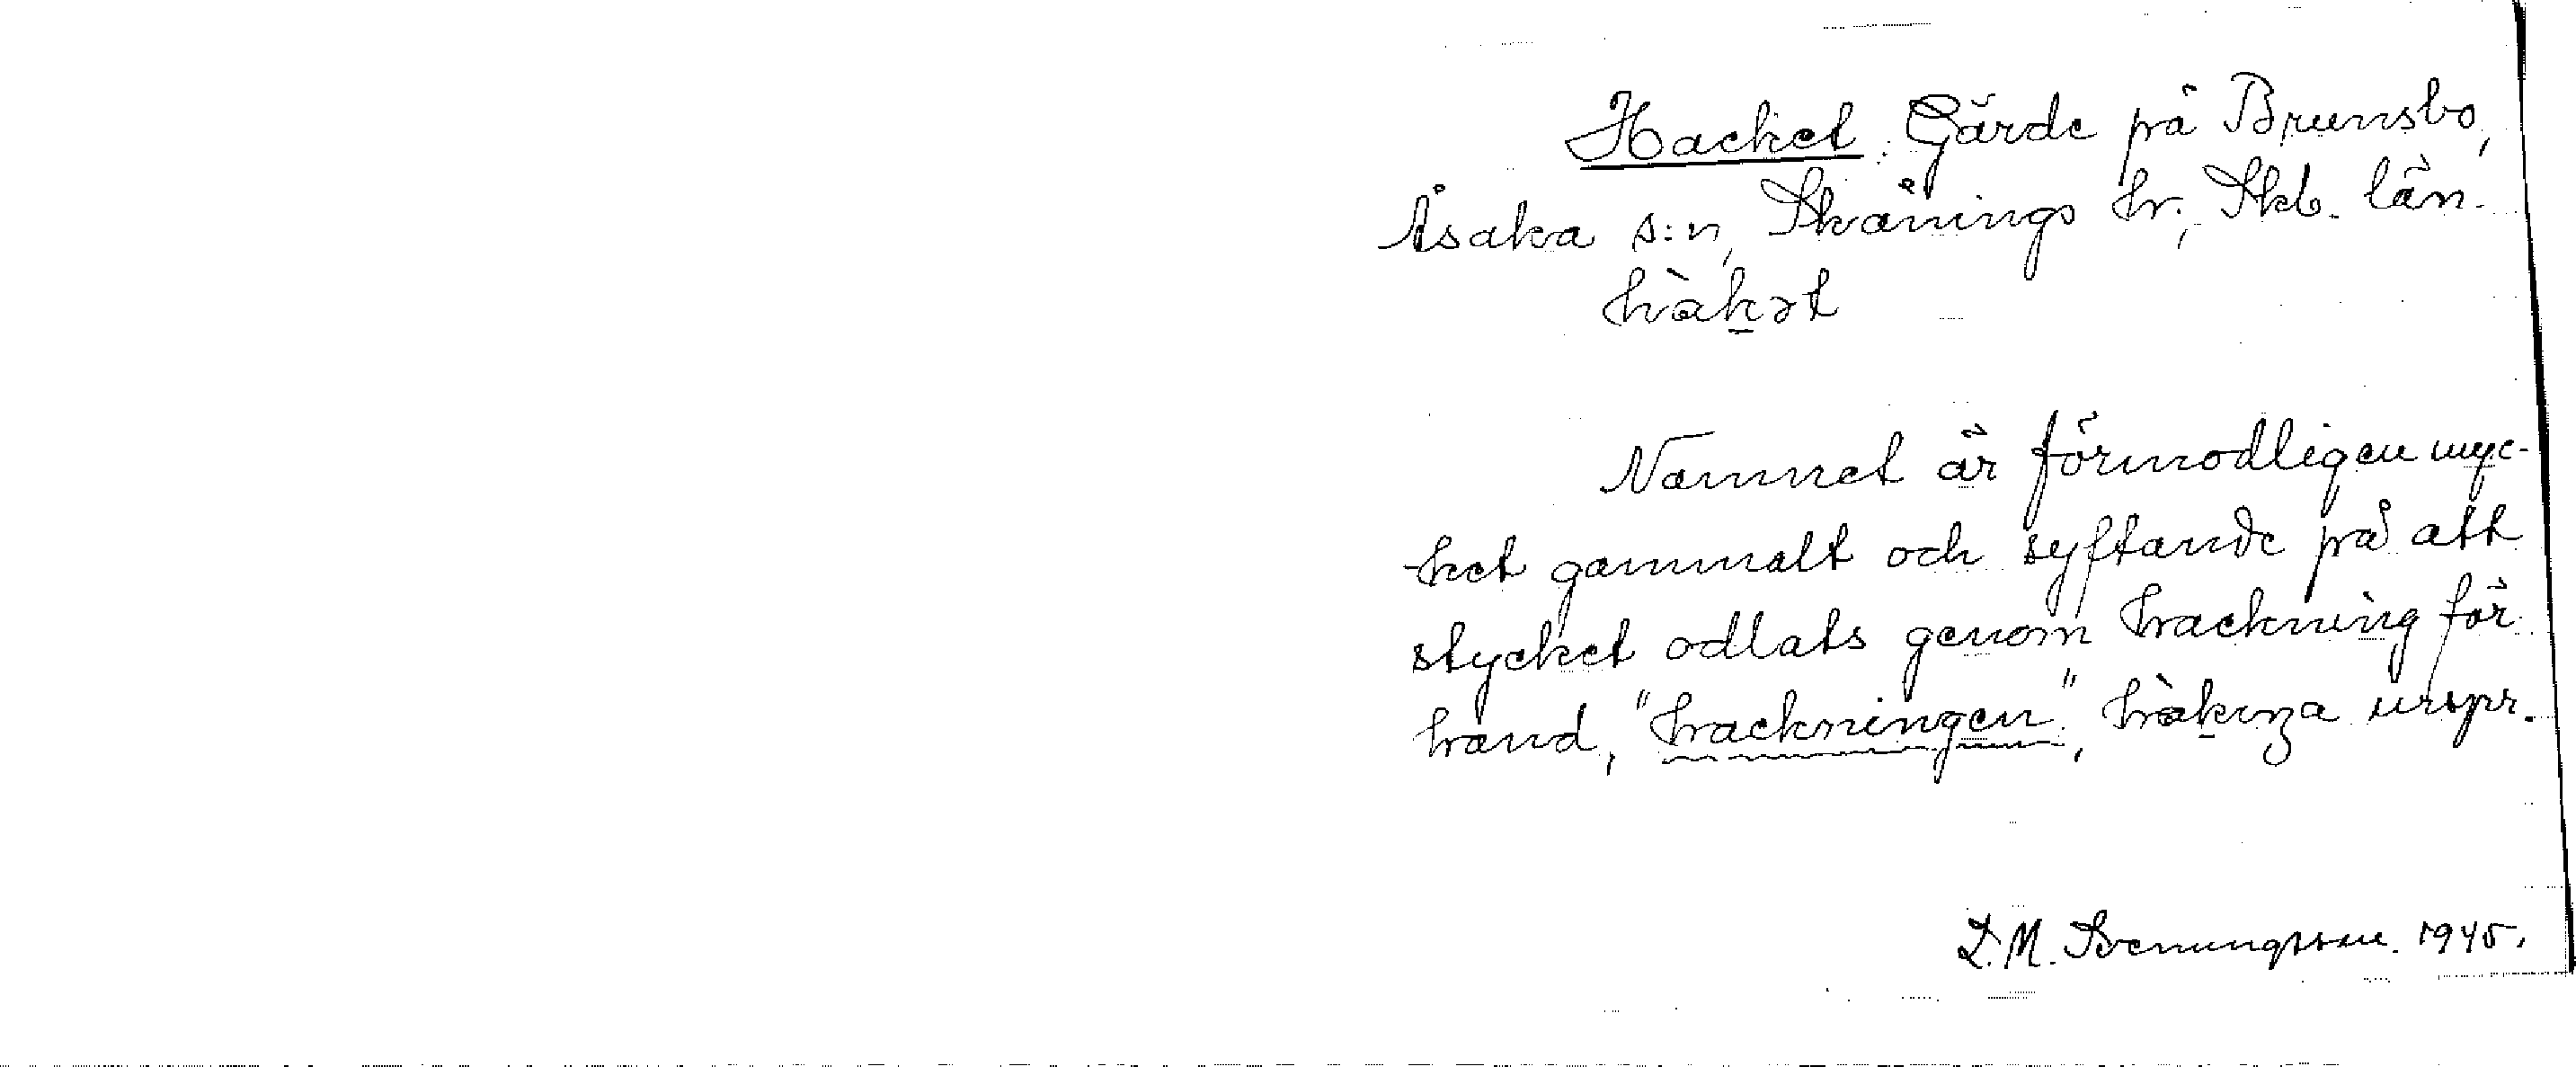 Hacket. Gärde på Brunsbo,
Åsaka s:n, Skånings hr, Skb. län.
hàkət
Namnet är förmodligen myc-
ket gammalt och syftande på att
stycket odlats genom hackning för
hand, "hackningen", hàkıŋa urspr.
L. M. Svenungsson. 1945.